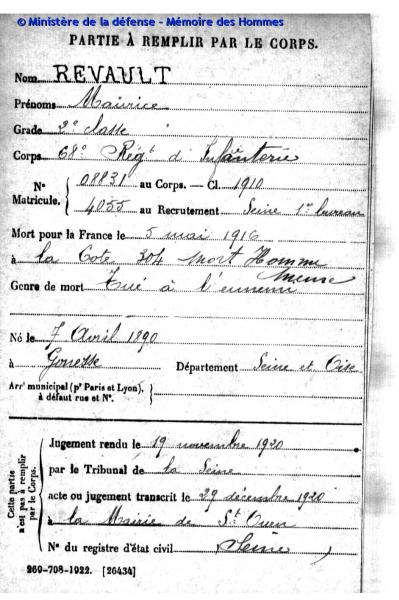 © Ministère de la défense - Mémoire des Hommes
PARTIE À REMPLIR PAR LE CORPS.
Nom REVAULT
Prénoms Maurice
Grade 2e classe
Corps 68e Régt d'Infanterie
N° Matricule. { 08831 au Corps. — Cl. 1910
4055 au Recrutement Seine 1er bureau
Mort pour la France le 5 mai 1916
à la Cote 304 Mort Homme Meuse
Genre de mort Tué à l'ennemi
Né le 7 Avril 1890
à Gonesse Département Seine et Oise
Arrt municipal (pr Paris et Lyon), à défaut rue et N°. }
Cette partie n'est pas à remplir par le Corps.
Jugement rendu le 19 novembre 1920
par le Tribunal de la Seine
acte ou jugement transcrit le 29 décembre 1920
à la Mairie de St Ouen
N° du registre d'état civil (Seine)
269-708-1922. [26434]